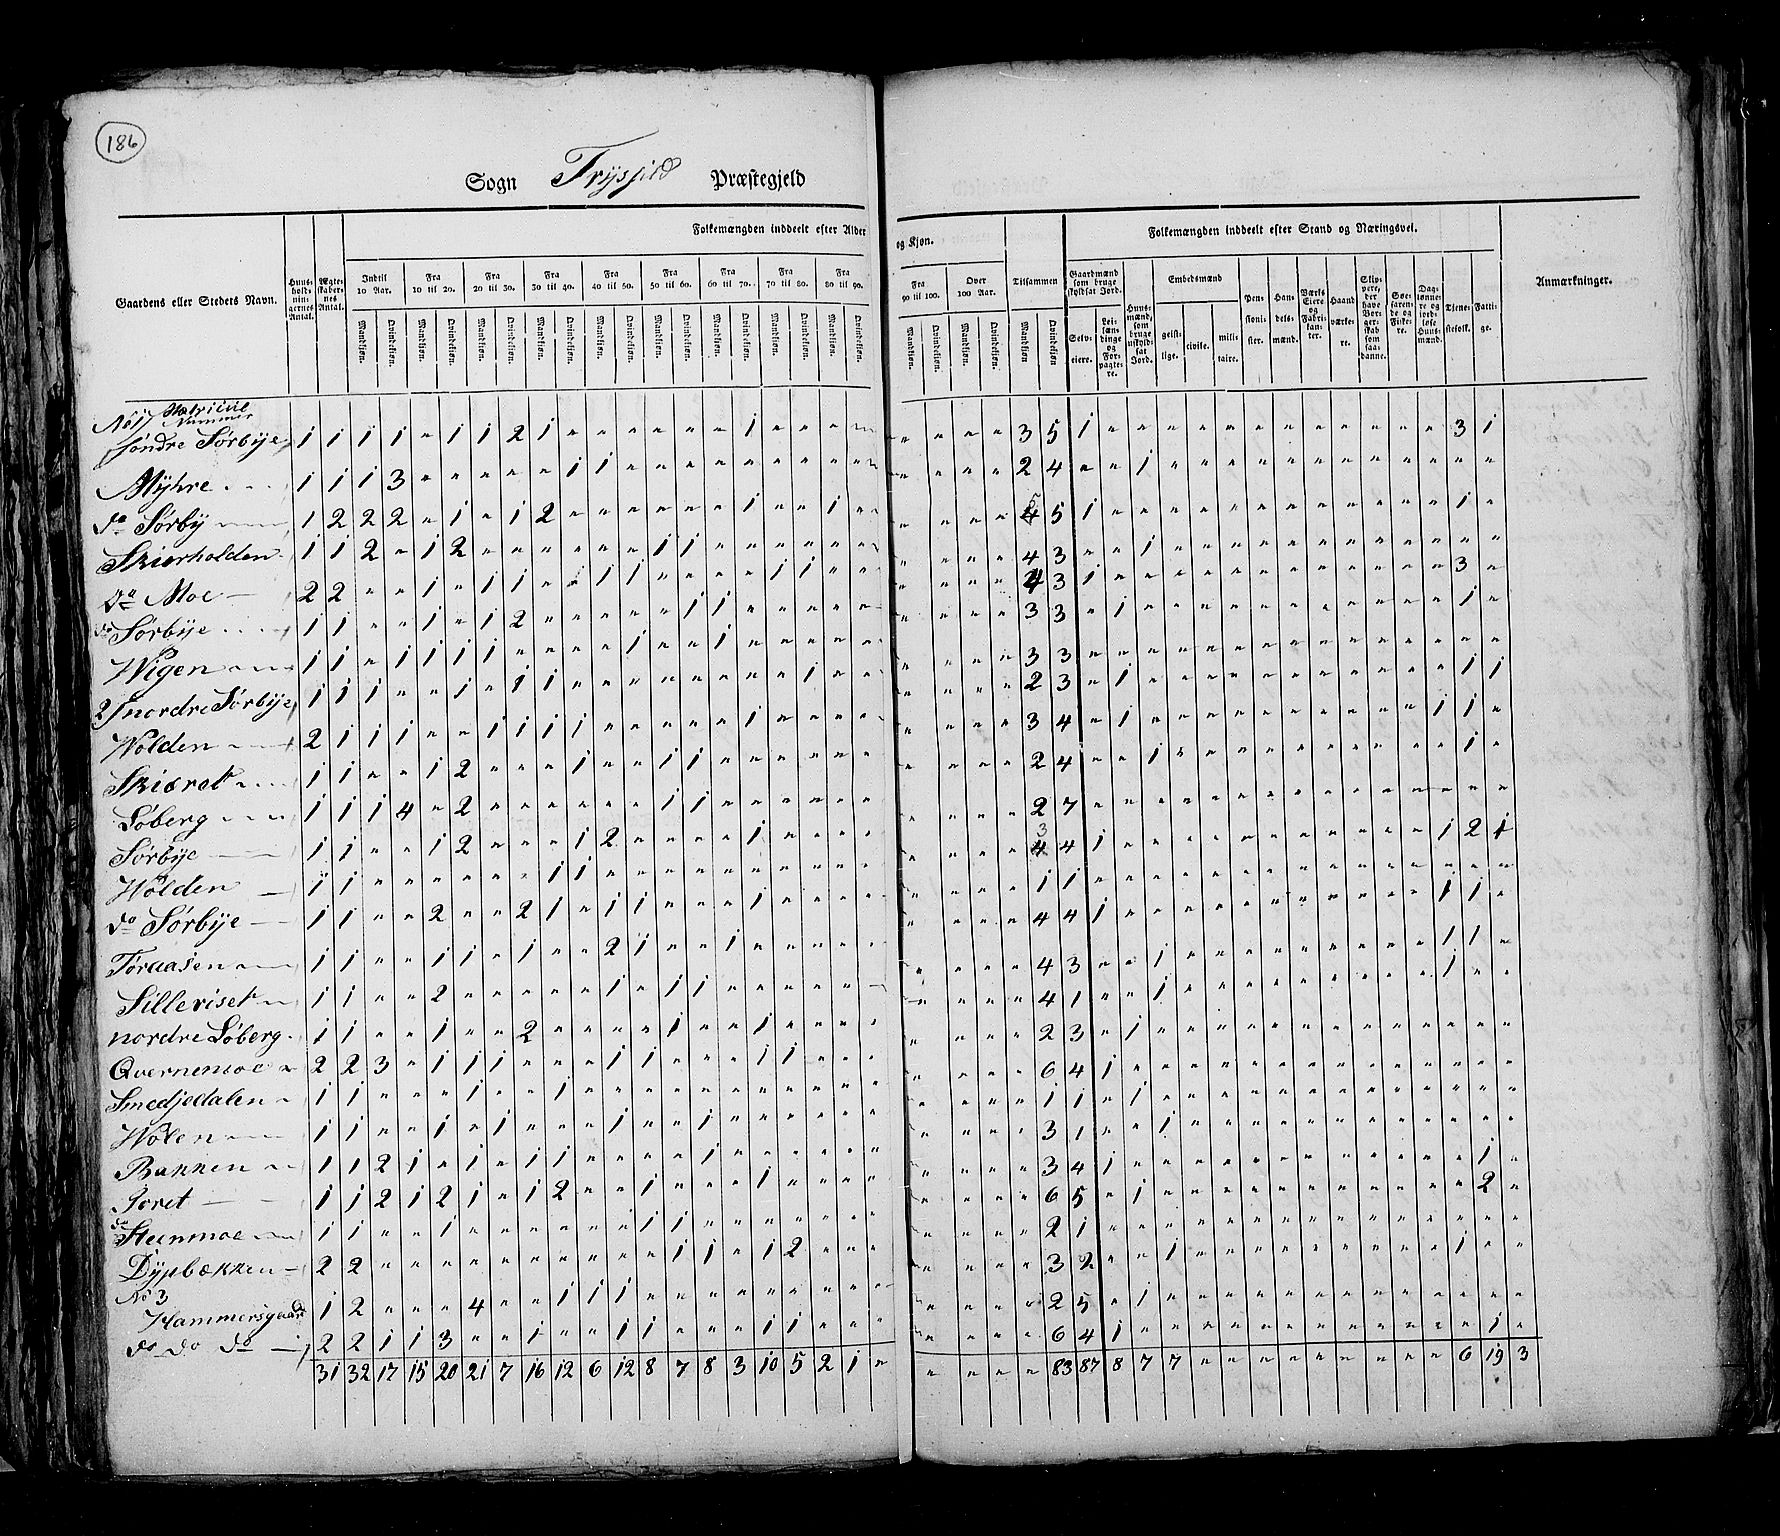 186
Sogn Trysfild Præstegjeld
Gaardens eller Stedets Navn.
Huus-holdningernes Antal.
Ægteskabernes Antal.
Folkemængden inddeelt efter Alder og Kjøn.
Indtil 10 Aar. Fra 10 til 20. Fra 20 til 30. Fra 30 til 40. Fra 40 til 50. Fra 50 til 60. Fra 60 til 70. Fra 70 til 80. Fra 80 til 90. Fra 90 til 100. Over 100 Aar. Tilsammen
Mandkjøn. Qvindekjøn.
Folkemængden inddeelt efter Stand og Næringsvei.
Gaardmænd som bruge skyldsat Jord.
Selveiere.
Leilændinge og Forpagtere.
Huusmænd som bruge uskyldsat Jord.
Embedsmænd
geistlige. civile. militaire.
Pensionister.
Handelsmænd.
Værks Eiere og Fabrikanter.
Haandværkere.
Skippere, der have Borgerskab som saadanne.
Søefarende og Fiskere.
Dagslønnere og jordløse Huusmænd.
Tjenestefolk.
Fattige.
Anmærkninger.
No 1 Matricul Nummer
søndre Sørbÿe 1 1 1 1 " 1 1 2 1 " " " " " " 1 " " " " " " " 3 5 1 " " " " " " " " " " " " 3 1
Mÿhre 1 1 1 3 " " " " " 1 1 " " " " " " " " " " " " 2 4 " " 1 " " " " " " " " " " " "
do Sørbÿ 1 2 2 2 " 1 " 1 2 " " " " " " 1 " " 1 " " " " 5 5 1 " " " " " " " " " " " " 1 "
Skiærholden 1 1 2 " 1 2 " " " " " " 1 1 " " " " " " " " " 4 3 " " 1 " " " " " " " " " " " "
do Moe 2 2 " " 1 " 1 1 " " 1 1 " " " " 1 1 " " " " " 4 3 1 " " " " " " " " " " " " 3 "
do Sørbÿe 1 1 " " 1 " 1 2 " " " " " 1 1 " " " " " " " 3 3 " 1 " " " " " " " " " " " 1 "
Wigen 1 1 " 1 1 1 1 " " " " 1 " " 1 " " " " " " " " 3 3 " " " " " " " " " " " " " " "
2 nordre Sørbÿe 1 1 1 " " 1 " 1 1 " " " " " " " " 1 " " " " " 2 3 " 1 " " " " " " " " " " " 1 1
Wolden 2 1 1 1 " " 1 1 1 1 " " " " " 1 " " " " " " " 3 4 " 1 " " " " " " " " " " 1 1 "
Skiæret 1 1 " " 1 2 " " " 1 " " 1 1 " " " " " " " " 2 4 " " 1 " " " " " " " " " " 1 "
Løberg 1 1 1 4 " 2 " " " " " " 1 1 " " " " " " " " 2 7 " " " " " " " " " " " " " " "
Sørbÿe 1 1 " " 1 2 " " " 1 2 " " " " 1 " " " " " " 3 4 1 " " " " " " " " " " " 1 2 1
Wolden 1 1 " " " " " " 1 1 " " " " " " " " " " " " 1 1 " " " " " " " " " " " " " " "
do Sørbÿe 1 1 " " 2 " " 2 1 " 1 1 " " " 1 " " " " " " 4 4 1 " " " " " " " " " " " 1 1 "
Toraasen 1 1 " " 1 1 " 1 " " 2 1 " " 1 " " " " " " " " 4 3 " " 1 " " " " " " " " " 1 1 "
Silleriset 1 1 " " 2 " " " " " 1 " 1 1 " " " " " " " " 4 1 " " 1 " " " " " " " " " 1 " "
nordre Løberg 1 1 " " 1 " " 2 " " " " 1 " " 1 " " " " " " 2 3 " 1 " " " " " " " " " " " " "
Qvernemoe 2 2 3 " 1 1 1 " " " 1 1 " " " 1 1 " " " " " 6 4 1 " " " " " " " " " " " " " "
Smedjedalen 1 1 " " " " 1 " " 1 " " " " " " " " " " " " 1 1 " 1 " " " " " " " " " " " " "
Wolen 1 1 " " 1 " 1 " " " " 1 " 1 " " " " " " " " 3 1 " " 1 " " " " " " " " " " " "
Bakken 1 1 2 1 " 1 " 1 1 " " " " 1 " " " " " " " " 3 4 1 " " " " " " " " " " " " 1 "
Joret 1 1 2 1 2 1 " 1 2 " " 1 " " " 1 " " " " " " 6 5 " 1 " " " " " " " " " " " 2 "
do Steenmoe 1 1 " " 1 " " " " " " 1 1 " " " " " " " " " 2 1 " " " " " " " " " " " " " " "
Dÿpbækken 2 2 " " " " " " " " " " 1 1 " 1 2 " " " " " 3 2 " " 1 " " " " " " " " " 1 " "
No 3
Hammersgaard 1 2 " " " 4 " " 1 1 1 " " " " " " " " " " " 2 5 " 1 " " " " " " " " " " " " "
do do do 2 2 1 1 3 " " 1 " " 1 1 " " " 1 1 " " " " " 6 4 1 " " " " " " " " " " " " 1 "
31 32 17 15 20 21 7 16 12 6 12 8 7 8 3 10 5 2 1 " " " " " 83 87 8 7 7 " " " " " " " " " 6 19 3